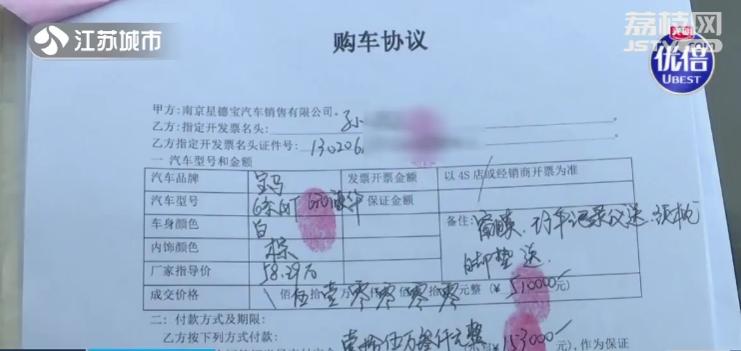 江苏城市
荔枝网
JSTV.COM
光明
优倍
UBEST
购车协议
甲方：南京星德宝汽车销售有限公司。
乙方：指定开发票名头：孙
乙方指定开发票名头证件号：130206
一 汽车型号和金额
汽车品牌 宝马 发票开票金额 以4S店或经销商开票为准
汽车型号 6系GT 保证金额
车身颜色 白 备注：窗膜、行车记录仪送、头枕
内饰颜色 棕 脚垫 送.
厂家指导价 58.29万
成交价格 伍 壹 零 零 零 零 元整（¥ 510000元）
二：付款方式及期限：
乙方按下列方式付款： 壹拾伍万叁仟元整 153000元），作为保证